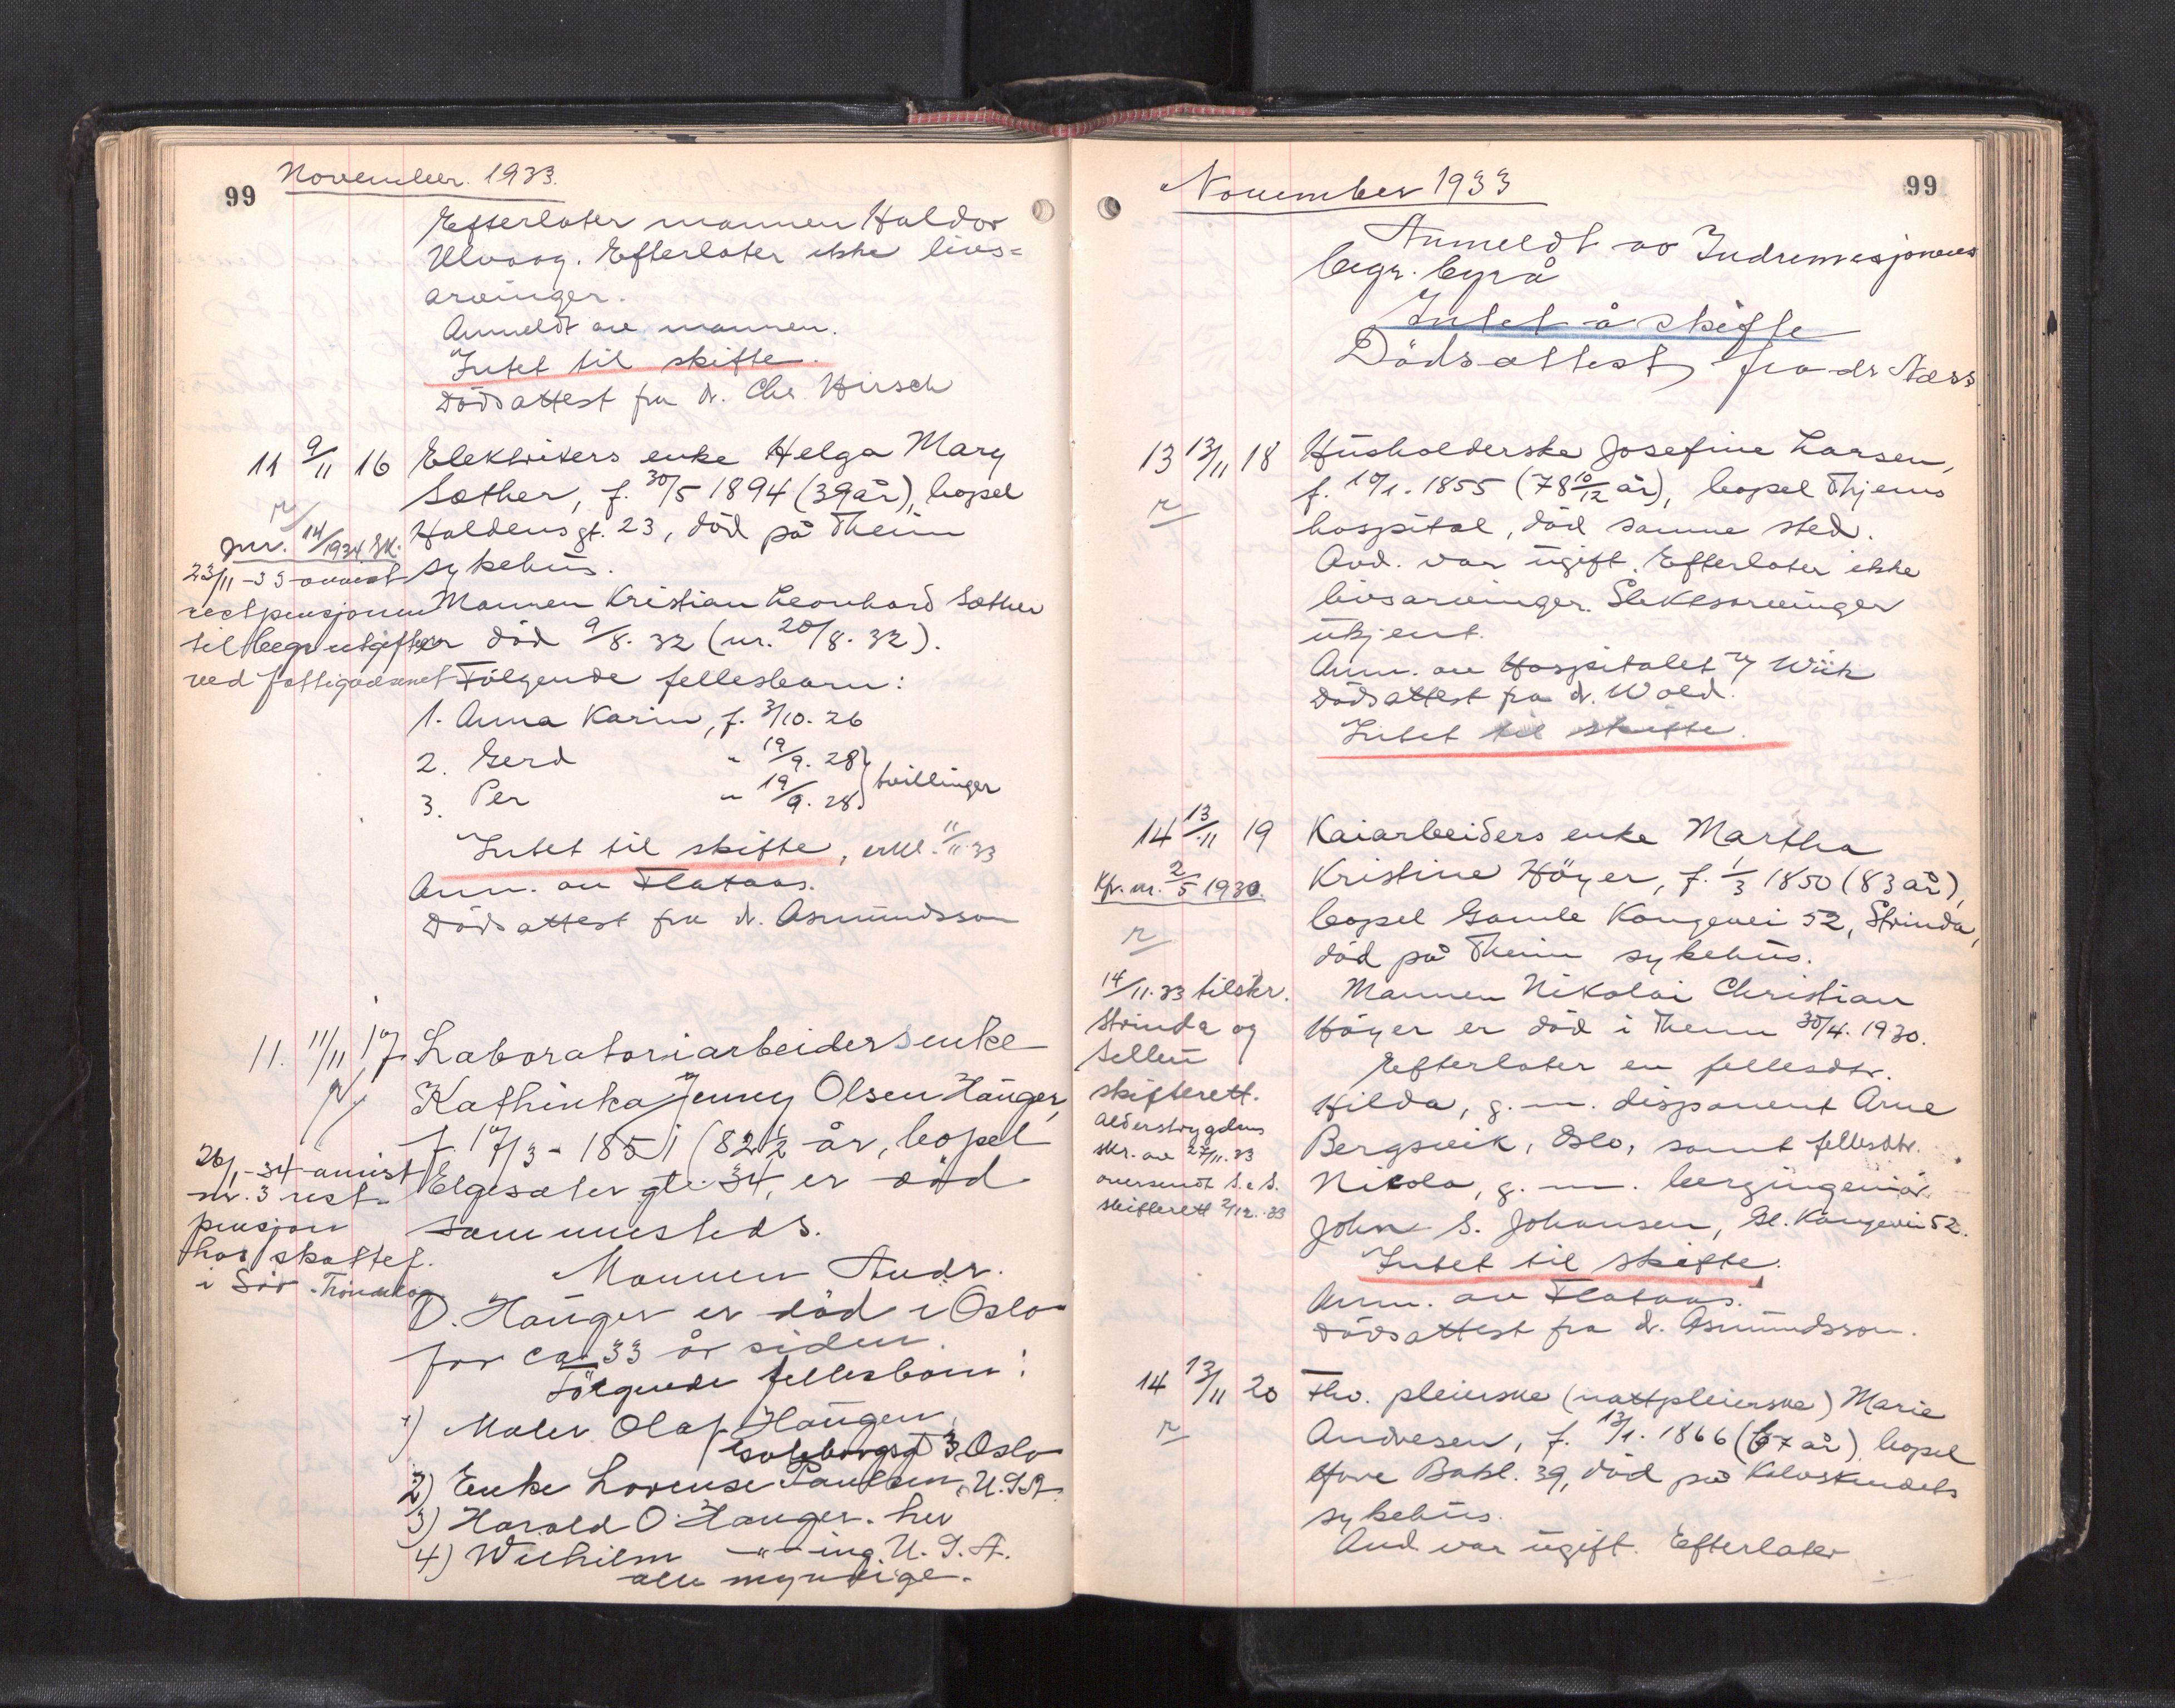 99
November. 1933.
Efterlater mannen Haldor
Ulvaag. Efterlater ikke livs=
arvinger.
Anmeldt av mannen.
Intet til skifte.
Dödsattest fra dr. Chr. Hirsch
11 9/11 16 Elektrikers enke Helga Mary
Sæther, f. 30/5 1894 (39 år), bopel
Haldens gt. 23, död på Theim
sykehus.
jnr. 14/1934 SK.
23/11-33 anvist
restpensjonen
til begr. utgifter
ved fattigvesenet
Mannen Kristian Leonhard Sæther
er död 9/8. 32 (nr. 20/8. 32).
Fölgende fellesbarn:
1. Anna Karin, f. 3/10. 26
2. Gerd " 19/9. 28
3. Per " 19/9. 28 } tvillinger
Intet til skifte, erkl. 11/11.33
Anm. av Flataas.
Dödsattest fra dr. Asmundsson
11. 11/11 17. Laboratoriarbeiders enke
Kathinka Jenny Olsen Hauger,
f. 17/3 - 1851 (82 1/2 år, bopel
Elgesæter gt. 34, er död
sammesteds.
26/1-34 anvist
nr. 3 rest-
pensjon
hos skattef.
i Sör-Tröndelag
Mannen Andr.
O. Hauger er död i Oslo
for ca. 33 år siden.
Fölgende fellesbarn:
1) Maler Olaf Haugen,
Goteborgsgt 3 Oslo
2) Enke Lovense Paulsen, U.S.A.
3) Harald O. Hauger. her
4) Wilhelm -"- ing. U.S.A.
alle myndige.
November 1933
99
Anmeldt av Indremisjonens
begr. byrå
Intet å skifte
Dödsattest fra dr Næss
13 13/11 18 Husholderske Josefine Larsen,
f. 10/1. 1855 (78 10/12 år), bopel Thjems
hospital, död samme sted.
Avd. var ugift. Efterlater ikke
livsarvinger. Slektsarvinger
ukjent.
Anm. av Hospitalet v/ Wiik
Dödsattest fra dr. Wold.
Intet til skifte.
14 13/11 19 Kaiarbeiders enke Martha
Kristine Höyer, f. 1/3 1850 (83 år),
bopel Gamle Kongevei 52, Strinda,
död på Theim sykehus.
Kfr. nr. 2/5 1930
14/11.33 tilskr.
Strinda og
Selbu
skifterett.
Alderstrygdens
skr. av 27/11.33
oversendt S. & S.
skifterett 2/12.33
Mannen Nikolai Christian
Höyer er död i Theim 30/4. 1930.
Efterlater en fellesdtr.
Hilda, g. m. disponent Arne
Bergsvik, Oslo, samt fellesdtr.
Nicola, g. m. bergingeniör
John S. Johansen, Gl. Kongevei 52.
Intet til skifte.
Anm. av Flataas.
Dödsattest fra dr. Asmundsson.
14 13/11 20 Fhv. pleierske (nattpleierske) Marie
Andresen, f. 13/1. 1866 (67 år) bopel
Övre Bakl. 39, död på Kalvskindets
sykehus.
Avd. var ugift. Efterlater